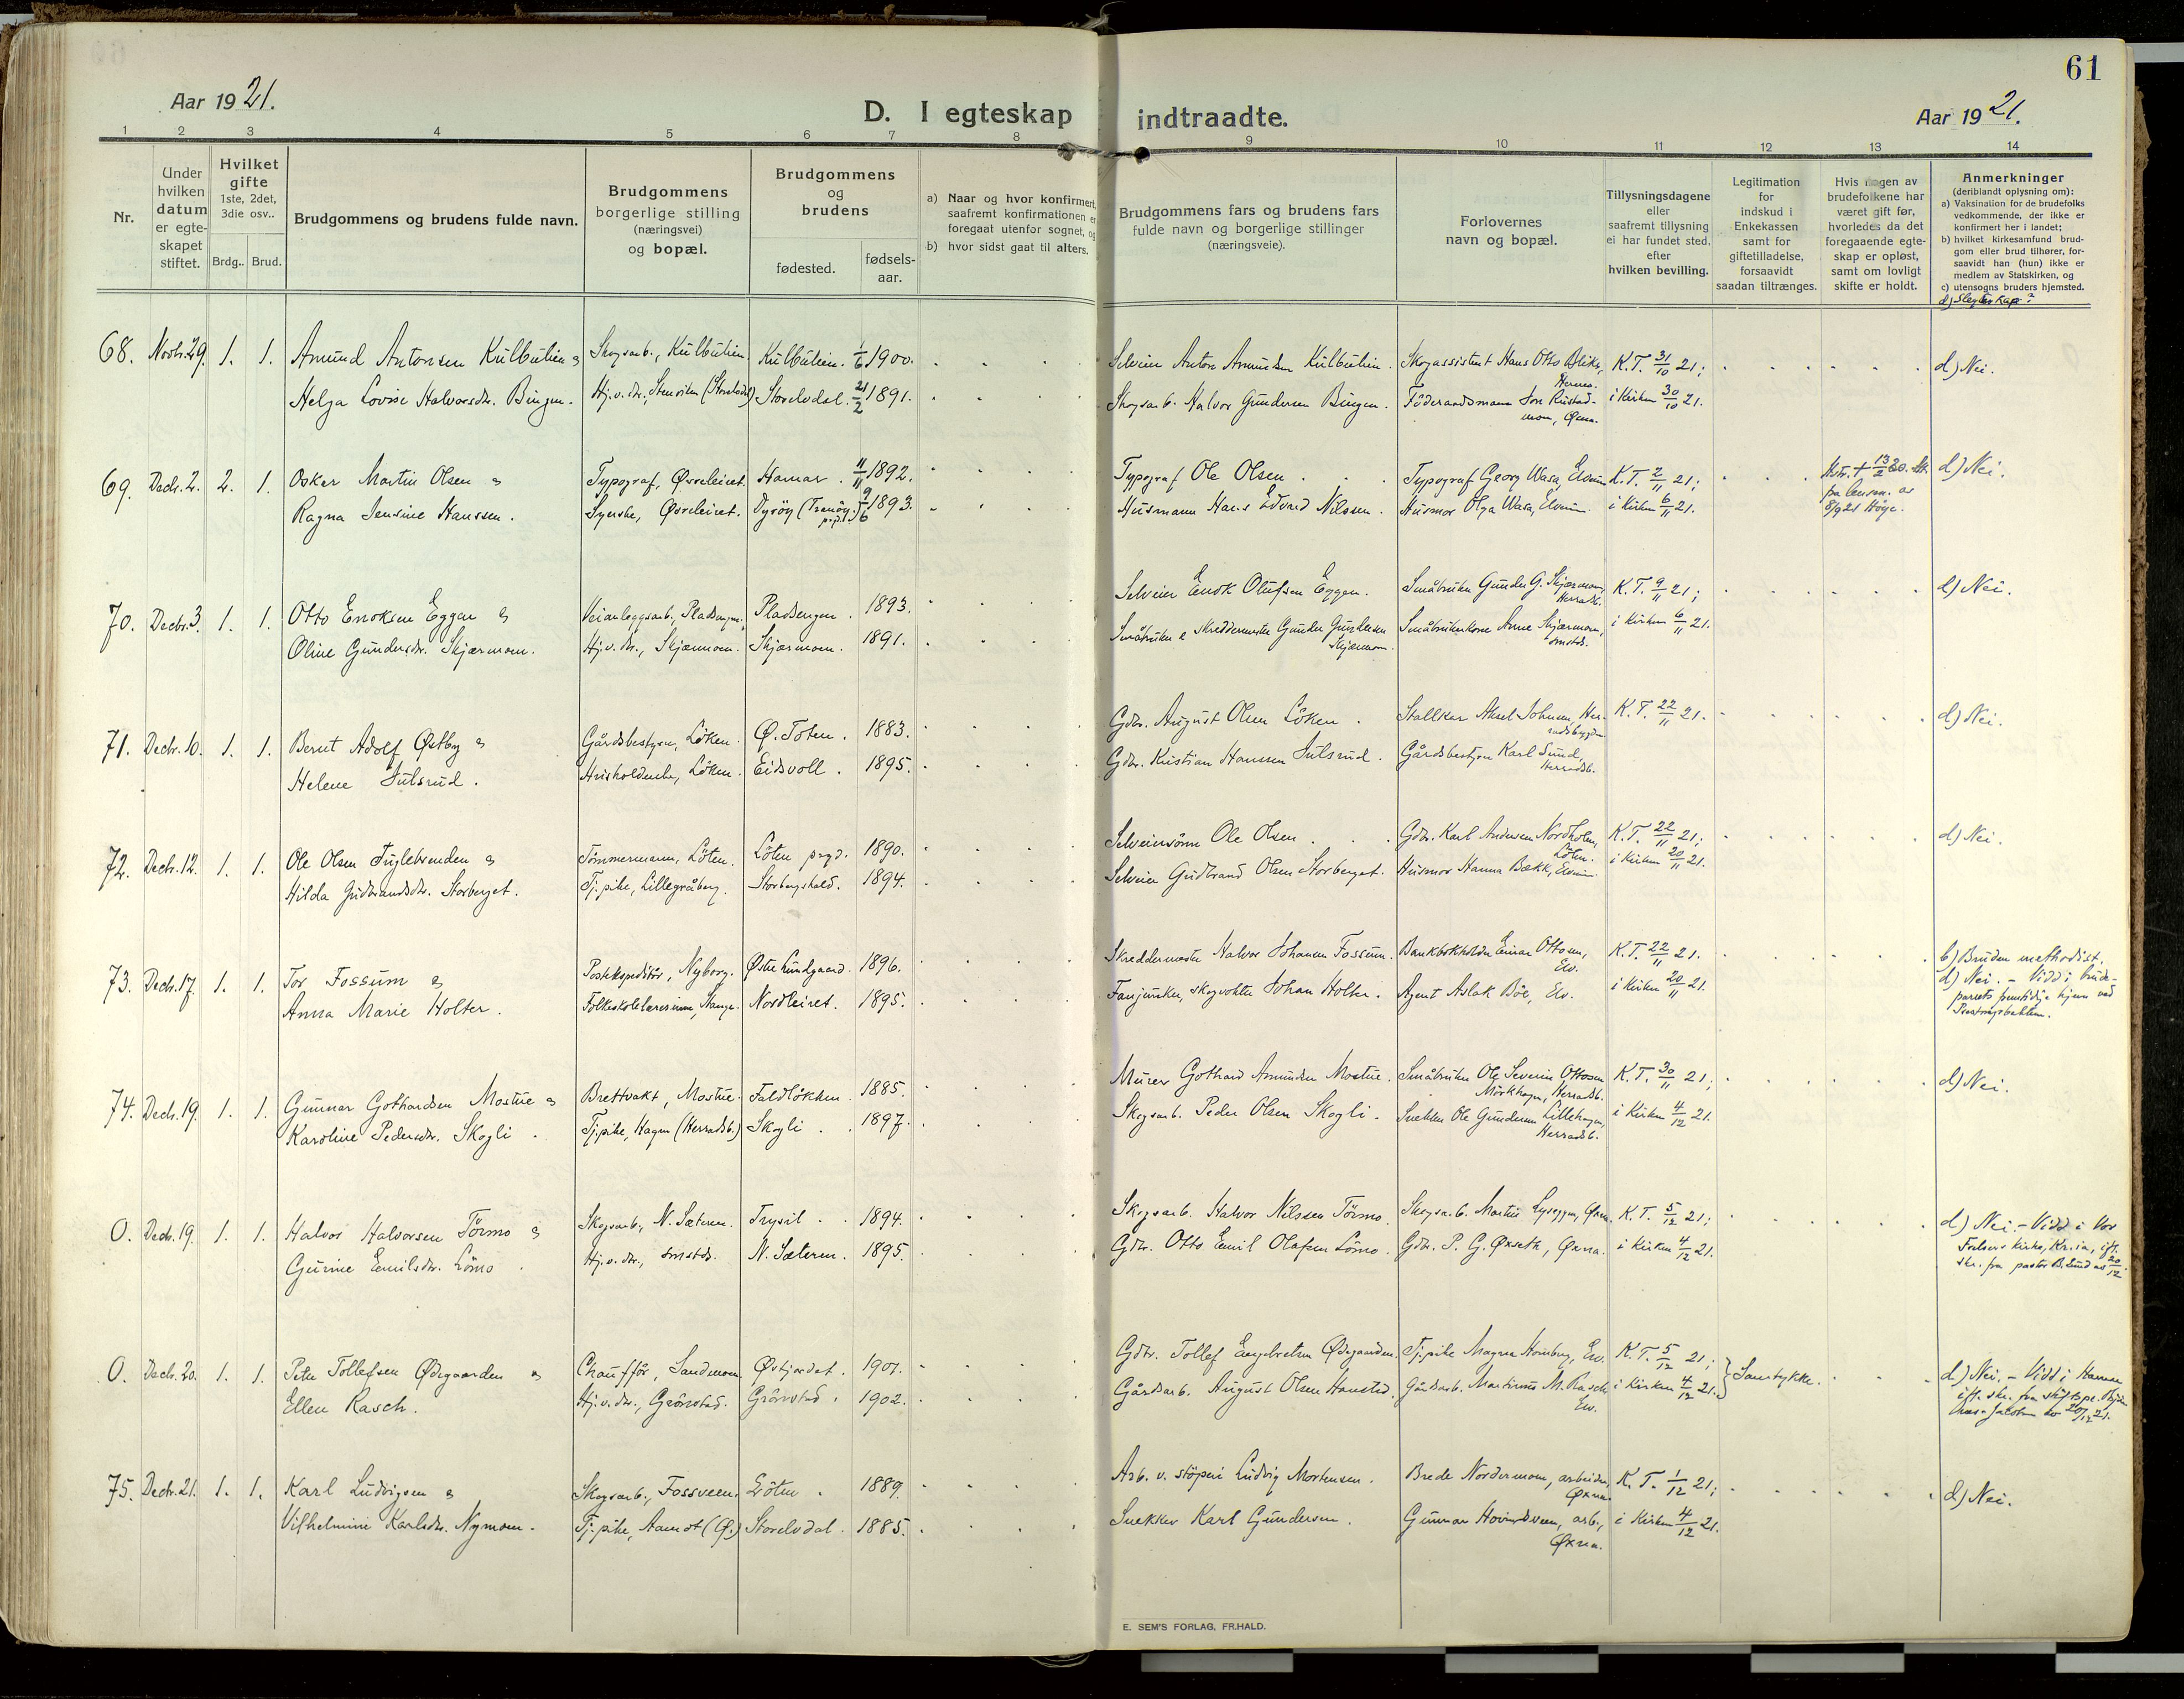 61
Aar 1921.
D. I egteskap indtraadte.
Aar 1921.
1 2 3 4 5 6 7 8 9 10 11 12 13 14
Nr.
Under hvilken datum er egte-skapet stiftet.
Hvilket gifte 1ste, 2det, 3die osv..
Brdg.. Brud.
Brudgommens og brudens fulde navn.
Brudgommens borgerlige stilling (næringsvei) og bopæl.
Brudgommens og brudens
fødested.
fødsels-aar.
a) Naar og hvor konfirmert, saafremt konfirmationen er foregaat utenfor sognet, og
b) hvor sidst gaat til alters.
Brudgommens fars og brudens fars fulde navn og borgerlige stillinger (næringsveie).
Forlovernes navn og bopæl.
Tillysningsdagene eller saafremt tillysning ei har fundet sted, efter hvilken bevilling.
Legitimation for indskud i Enkekassen samt for giftetilladelse, forsaavidt saadan tiltrænges.
Hvis nogen av brudefolkene har været gift før, hvorledes da det foregaaende egte-skap er opløst, samt om lovligt skifte er holdt.
Anmerkninger (deriblandt oplysning om):
a) Vaksination for de brudefolks vedkommende, der ikke er konfirmert her i landet;
b) hvilket kirkesamfund brud-gom eller brud tilhører, for-saavidt han (hun) ikke er medlem av Statskirken, og
c) utensogns bruders hjemsted.
d) Slegtskap?
68. Novbr. 29. 1. 1. Amund Antonsen Kulbulien & Skogsarb., Kulbulien. Kulbulien. 1/6 1900. Selveier Anton Amundsen Kulbulien. Skogassistent Hans Otto Bliks, Hernes. K.T. 31/10 21; d) Nei.
Helga Lovise Halvorsdr. Bingen. Hj.v. dr., Stenviken Storelvdal. 21/2 1891. Skogsarb. Halvor Gundersen Bingen. Föderaadsmann Jon Rustad-moen, Øxna. i Kirken 30/10 21.
69. Decbr. 2. 2. 1. Oskar Martin Olsen & Typograf, Øvreleiret. Hamar. 11/11 1892. Typograf Ole Olsen. Typograf Georg Wasa, Elverum K.T. 2/11 21; Hstr. + 13/2 20. d) Nei.
Ragna Jensine Hanssen. Syerske, Øvreleiret. Dyröy (Tranöy prgj.) 9/6 1893. Husmann Hans Edvard Nilssen. Husmor Olga Wasa, Elverum. i Kirken 6/11 21. fra av 8/9 21
70. Decbr. 3. 1. 1. Otto Enoksen Eggen & Veianleggsarb., Pladsengen. Pladsengen. 1893. Selveier Enok Olufsen Eggen. Småbruker Gunder G. Skjærmoen, Herradb. K.T. 9/11 21; d) Nei.
Oline Gundersdr. Skjærmoen. Hj.v. dr., Skjærmoen. Skjærmoen. 1891. Småbruker & skreddermester Gunder Gundersen Skjærmoen. Småbrukerkone Anne Skjærmoen, smstds. i Kirken 6/11 21.
71. Decbr. 10. 1. 1. Bernt Adolf Østby & Gårdsbestyrer, Löken. Ø. Toten. 1883. Gdbr. August Olsen Löken. Stallkar Aksel Johnsen, Her-radsbygden K.T. 22/11 21. d) Nei.
Helene Julsrud. Husholderske, Löken. Eidsvoll. 1895. Gdbr. Kristian Hanssen Julsrud. Gårdsbestyrer Karl Sund, Herradsb.
72. Decbr. 12. 1. 1. Ole Olsen Fuglebrenden & Tömmermann, Löten. Löten prgj. 1890. Selveiersönn Ole Olsen. Gdbr. Karl Andersen Nordholen, Löten. K.T. 22/11 21; d) Nei.
Hilda Gudbrandsdr. Storberget. Tj.pike, Lillegråberg. Storbergshold. 1894. Selveier Gudbrand Olsen Storberget. Husmor Hanna Bækk, Elverum. i Kirken 20/11 21.
73. Decbr. 17. 1. 1. Tor Fossum & Postekspeditör, Nyborg. Østre Lundgaard. 1896. Skreddermester Halvor Johansen Fossum. Bankbokholder Einar Ottosen, Elv. K.T. 22/11 21. b) Bruden methodist.
Anna Marie Holter. Folkeskolelærerinne, Stange. Nordleiret. 1895. Fanjunker, skogvokter Johan Holter. Agent Aslak Böe, Elv. i Kirken 20/11 21. d) Nei. - Vidd i brude-parrets fremtidige hjem ved
74. Decbr. 19. 1. 1. Gunnar Gothardsen Mostue & Brettvakt, Mostue. Faldlökken. 1885. Murer Gothard Amundsen Mostue. Småbruker Ole Severin Ottosen Mörkhagen, Herradsb. K.T. 30/11 21; d) Nei.
Karoline Pedersdr. Skogli. Tj.pike, Hagen (Herradsb.) Skogli. 1897. Skogsarb. Peder Olsen Skogli. Snekker Ole Gundersen Lillehagen, Herradsb. i Kirken 4/12 21.
0. Decbr. 19. 1. 1. Halvor Halvorsen Törmo & Skogsarb., N. Sæteren. Trysil. 1894. Skogsarb. Halvor Nilssen Törmo. Skogsarb. Martin Lyseggen, Øxna. K.T. 5/12 21; d) Nei. - Vidd i Vor Frelsers kirke, Kr.ia, ifl.
Gurine Emilsdr. Lömo. Hj.v. dr., smstds. N. Sæteren. 1895. Gdbr. Otto Emil Olafsen Lömo. Gdbr. P. G. Øxseth, Øxna. i Kirken 4/12 21. skr. fra pastor B. Lund av 20/12.
0. Decbr. 20. 1. 1. Peter Tollefsen Ødegaarden & Chaufför, Sandmoen Øvfjordet. 1901. Gdbr. Tollef Engebretsen Ødegaarden. Tj.pike Magna Hornberg, Elv. K.T. 5/12 21; Samtykke. d) Nei. - Vidd i Hamar
Ellen Rasch. Hj.v. dr., Grönstad. Grönstad. 1902. Gårdsarb. August Olsen Hanstad. Gårdsarb. Martinius M. Rasch Elv. i Kirken 4/12 21. ifl. skr. fra av 20/12 21.
75. Decbr. 21. 1. 1. Karl Ludvigsen & Skogsarb., Fossveen. Löten. 1889. Arb. v. støperi Ludvig Mortensen. Brede Nordermoen, arbeider, Øxna. K.T. 1/12 21; d) Nei.
Vilhelmine Karlsdr. Nymoen. Tj.pike, Aamot (Ø.) Storelvdal. 1885. Snekker Karl Gundersen. Gunnar Hovindsveen, arb., Øxna. i Kirken 4/12 21.
E. SEM'S FORLAG, FR.HALD.